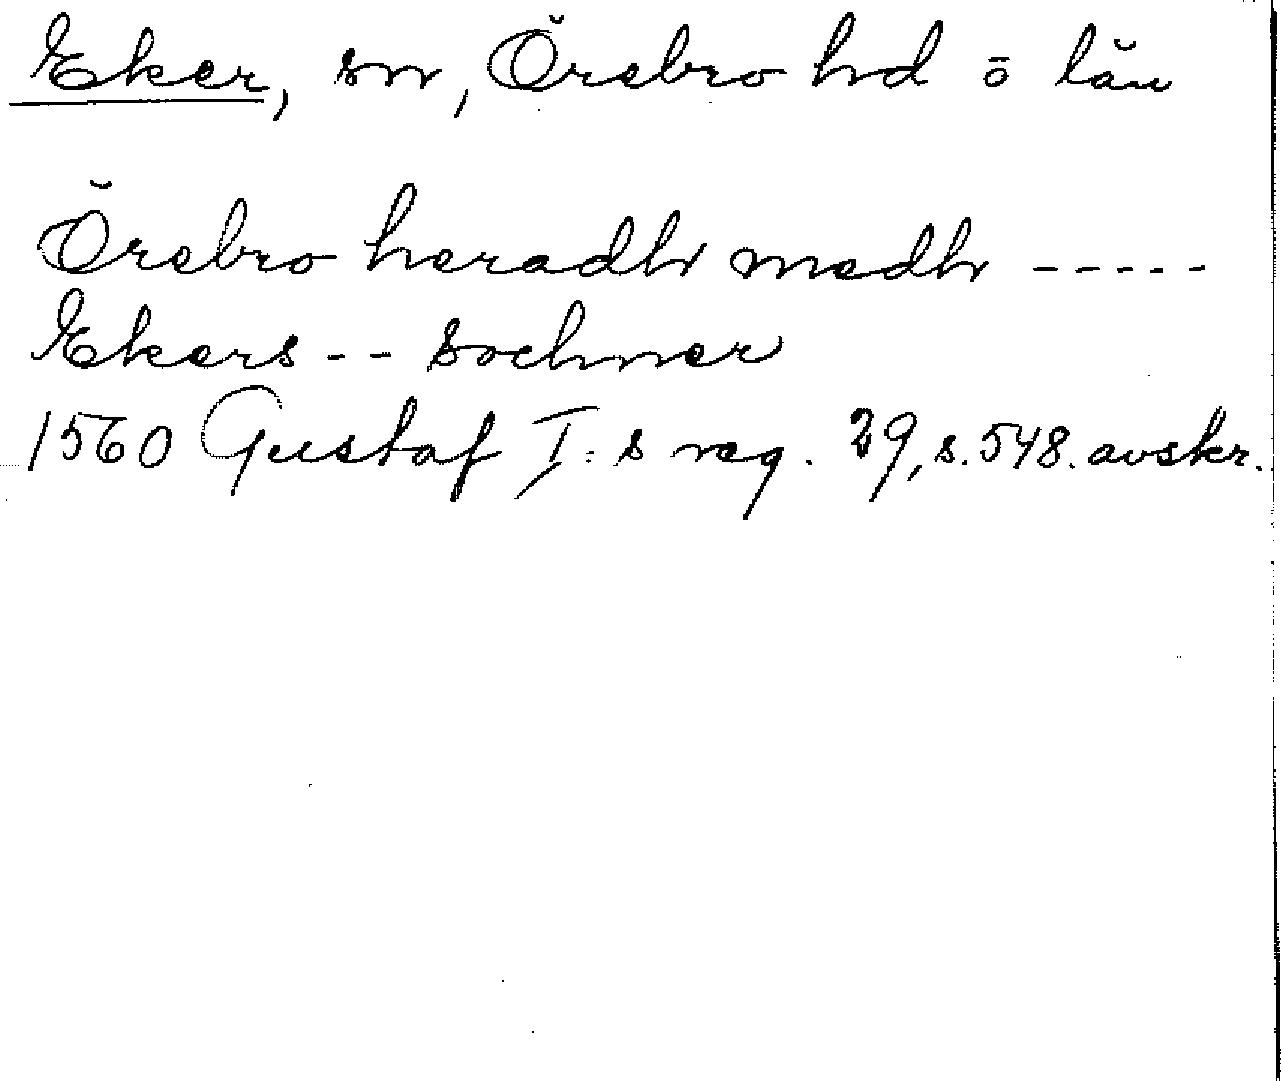 Eker, sn, Örebro hd o län
Örebro heradh medh -----
Ekers -- sochner
1560 Gustaf I: s reg. 29, s. 548. avskr.